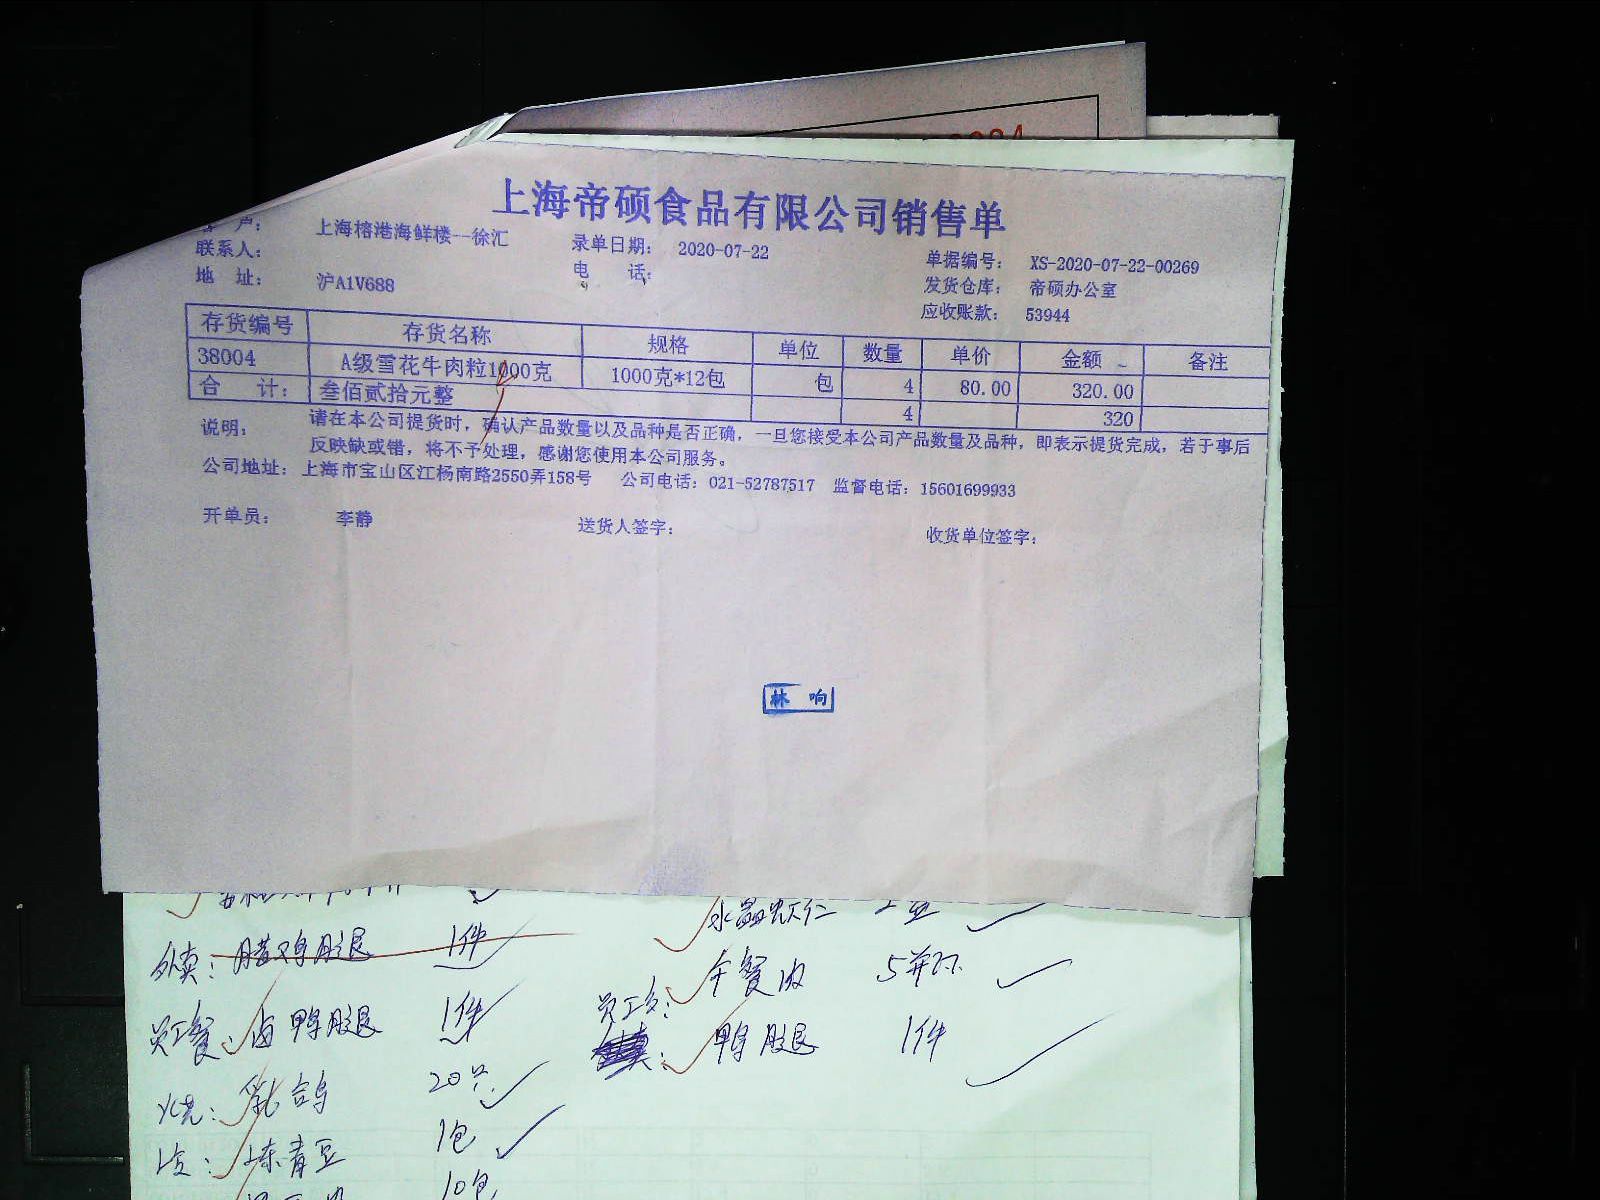 上海帝硕食品有限公司销售单
客 户： 上海榕港海鲜楼--徐汇 录单日期： 2020-07-22 单据编号： XS-2020-07-22-00269
联系人： 电 话： 发货仓库： 帝硕办公室
地 址： 沪A1V688 应收账款： 53944
存货编号 存货名称 规格 单位 数量 单价 金额 备注
38004 A级雪花牛肉粒1000克 1000克*12包 包 4 80.00 320.00
合 计： 叁佰贰拾元整 4 320
说明， 请在本公司提货时，确认产品数量以及品种是否正确，一旦您接受本公司产品数量及品种，即表示提货完成，若于事后
反映缺或错，将不予处理，感谢您使用本公司服务。
公司地址：上海市宝山区江杨南路2550弄158号 公司电话：021-52787517 监督电话：15601699933
开单员： 李静 送货人签字： 收货单位签字：
林 响
水晶虾仁
外卖：腊鸡腿 1件
午餐肉
员工餐：卤鸭腿 1件
鸭腿 1件
乳鸽 20只
冻青豆 1包
10包